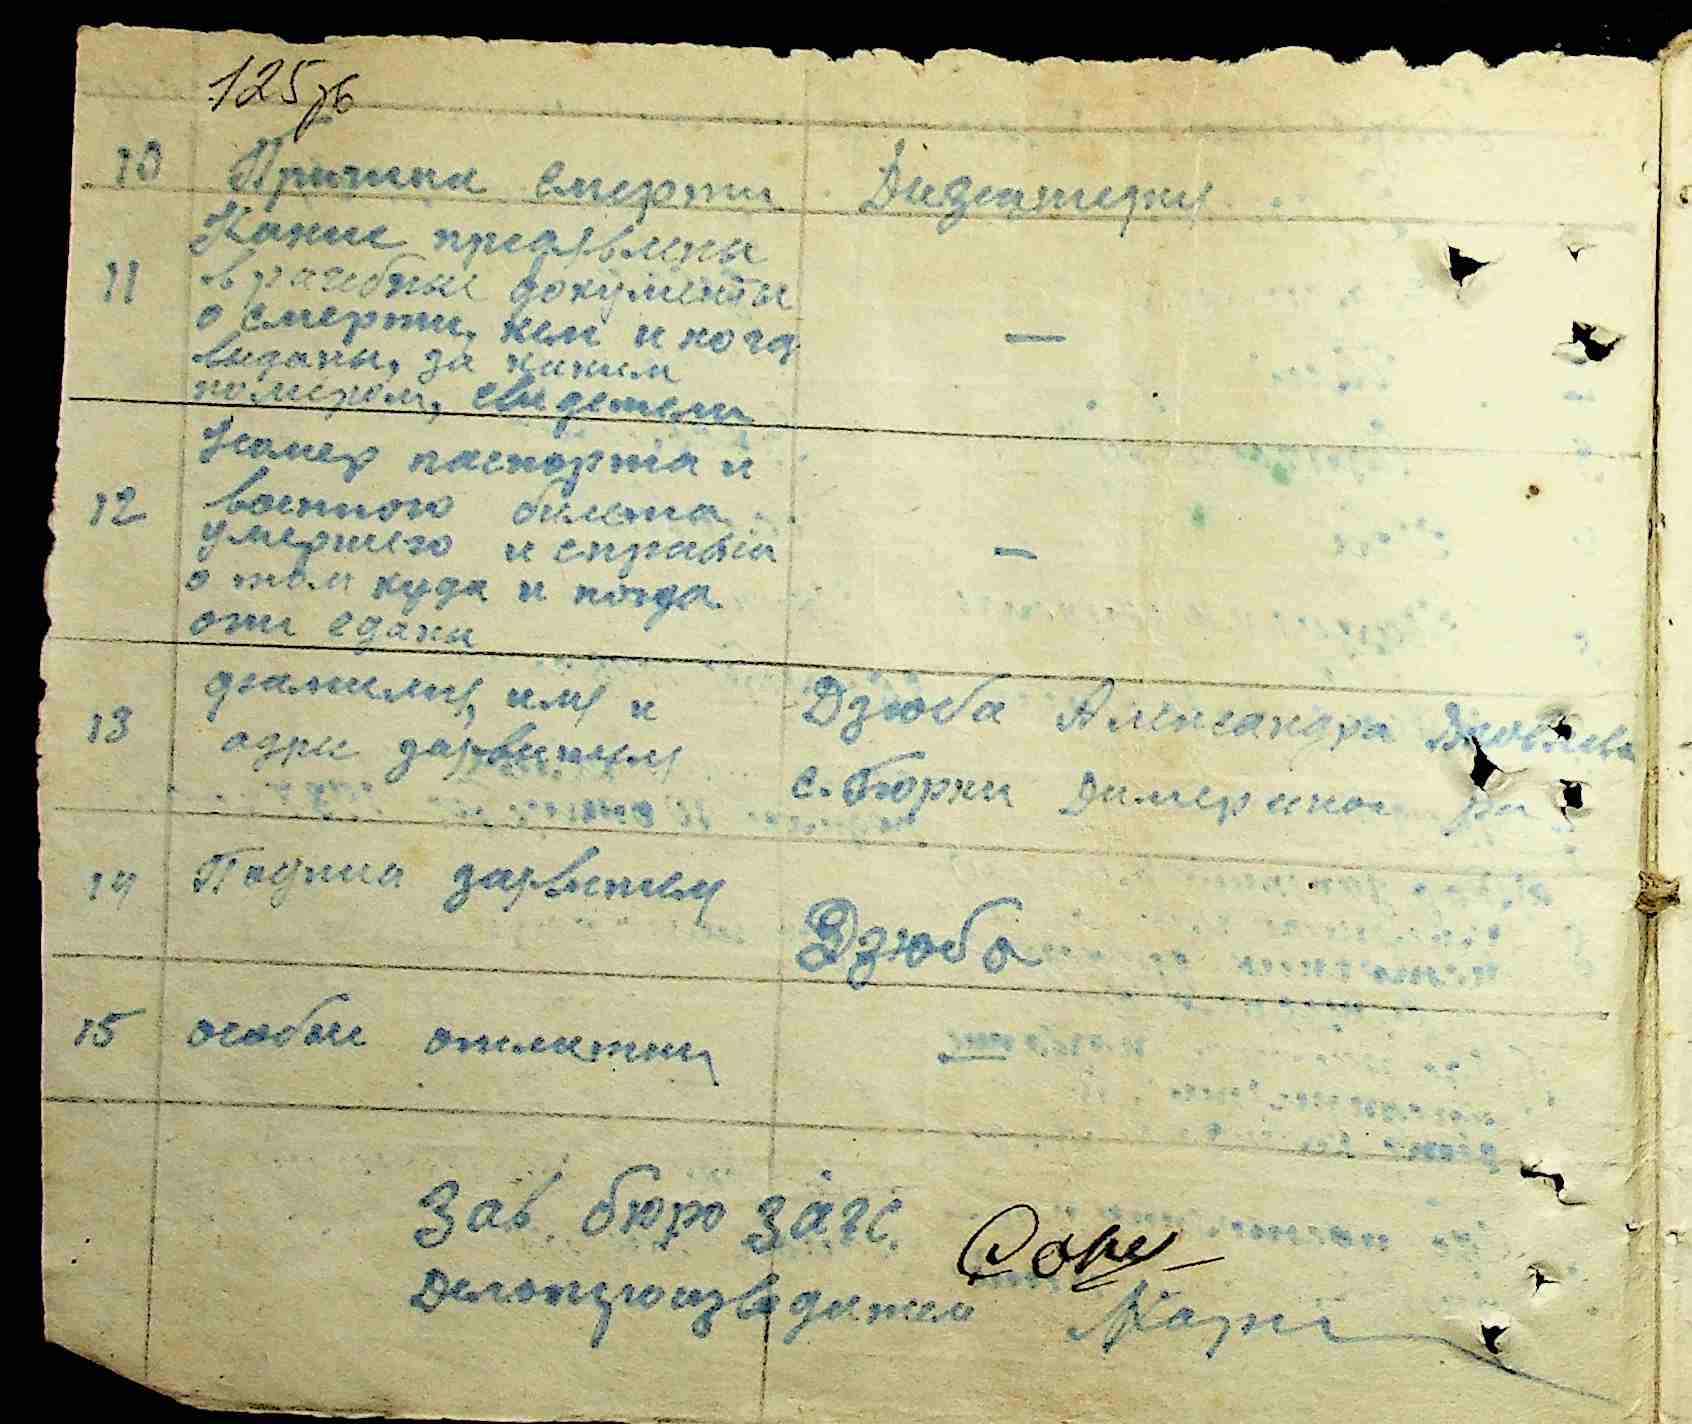 125зв
10 Причина смерти Дизентерия
11 Какие предявлены
врачебные документы
о смерти, кем и когда
выданы, за каким
номером, свидетели —
12 Номер паспорта и
военного билета
умершего и справка
о том куда и когда
они сданы —
13 фамилия, имя и
адрес заявителя
Дзюба Александра Яковлевна
с. Борки Димерского р-на
14 Подпись заявителя
Дзюба
15 особые отметки
Зав. бюро загс.
Делопроизводитель